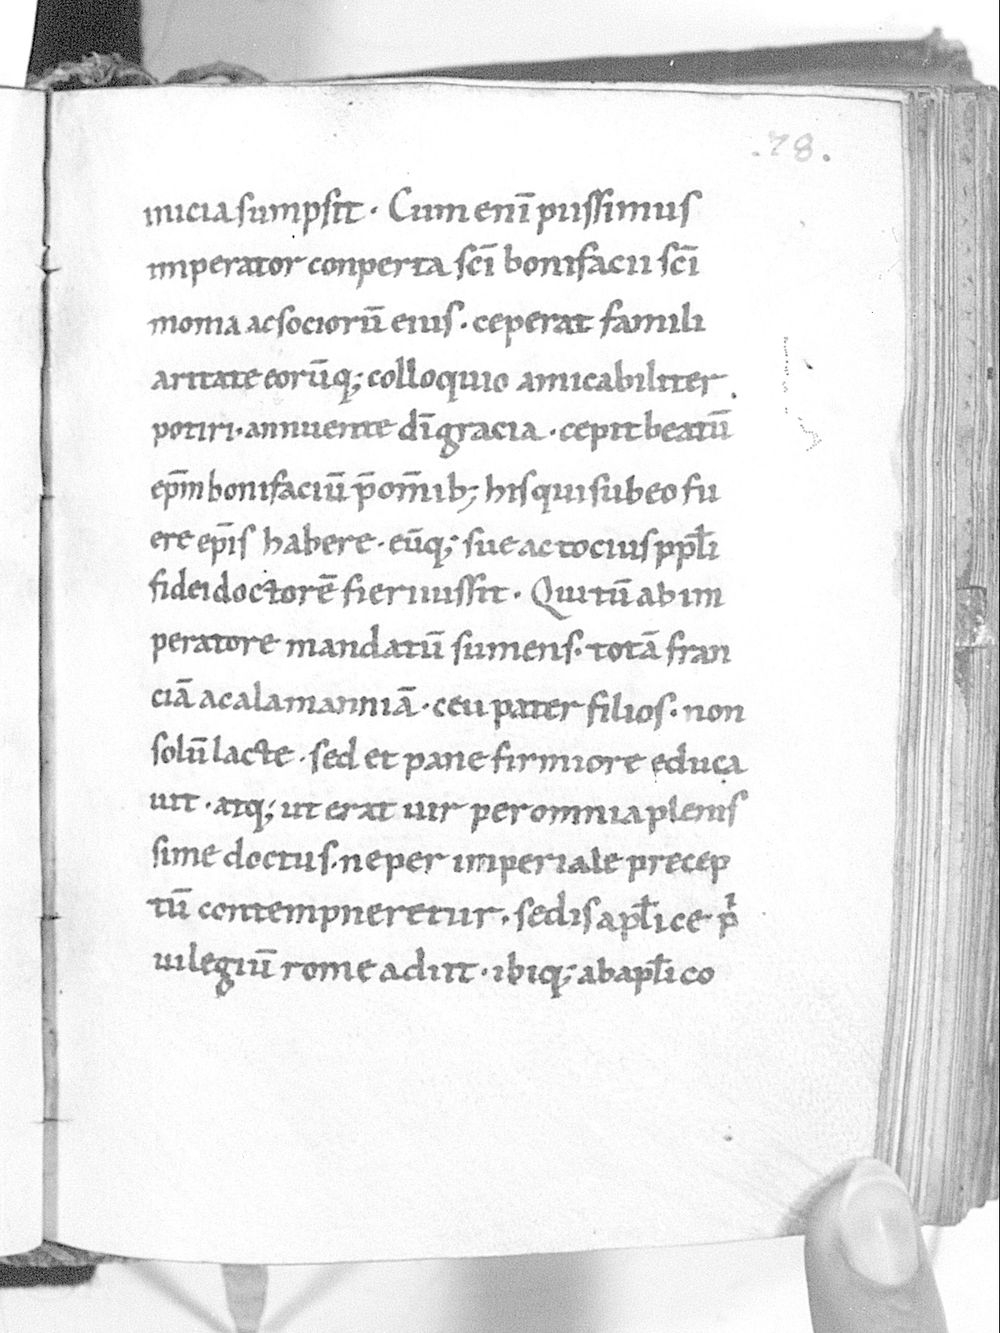 .78.
inicia sumpsit · Cum enī piissimus
imperator conperta sc̄i bonifacii sc̄i
monia ac sociorū eius · ceperat famili
aritate eorūq; colloquio amicabiliter
potiri · annuente dī gracia · cepit beatū
ep̄m bonifaciū p̄ om̄ib; his qui sub eo fu
ere ep̄is habere · eūq; sue ac tocius ppl̄i
fidei doctorē fieri iussit · Qui tū ab im
peratore mandatū sumens · totā fran
ciā ac alamanniā · ceu pater filios · non
solū lacte · sed et pane firmiore educa
uit · atq; ut erat uir per omnia plenis
sime doctus · ne per imperiale precep
tū contempneretur · sedis apl̄ice p̍
uilegiū rome adiit · ibiq; ab apl̄ico